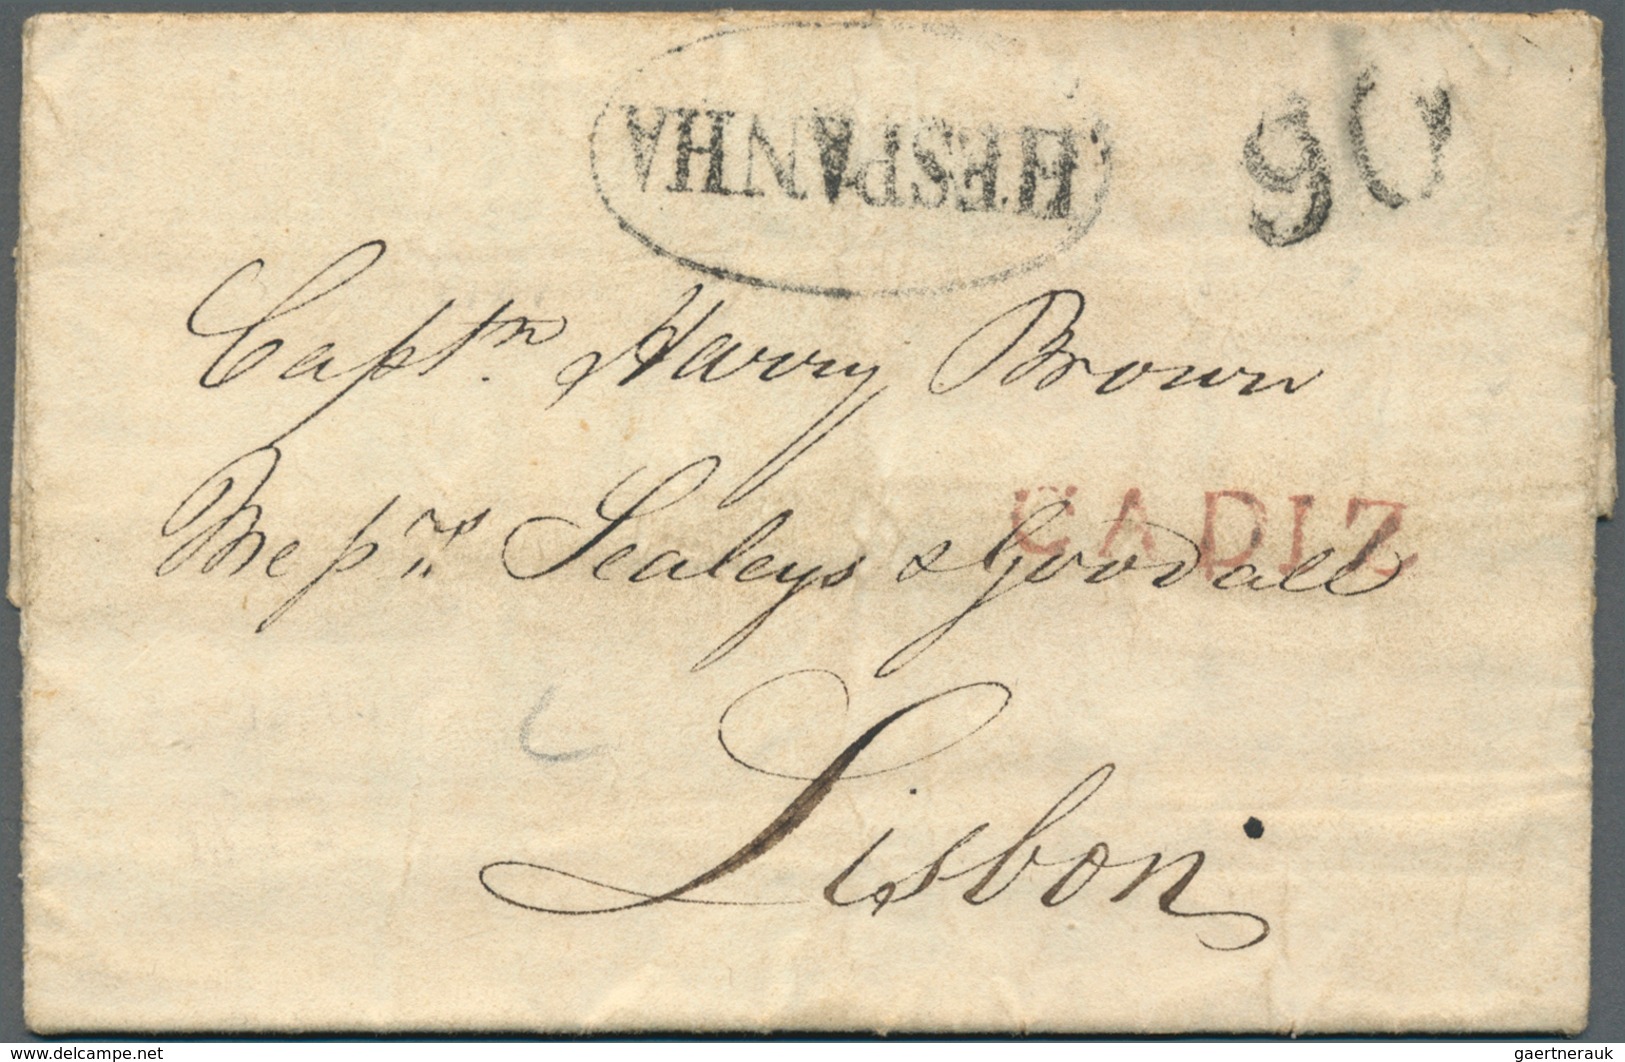 HESPANHA
90
Captn. Harry Brown
CADIZ
Messrs. Sealeys & Goodall
Lisbon
www.delcampe.net
gaertnerauk